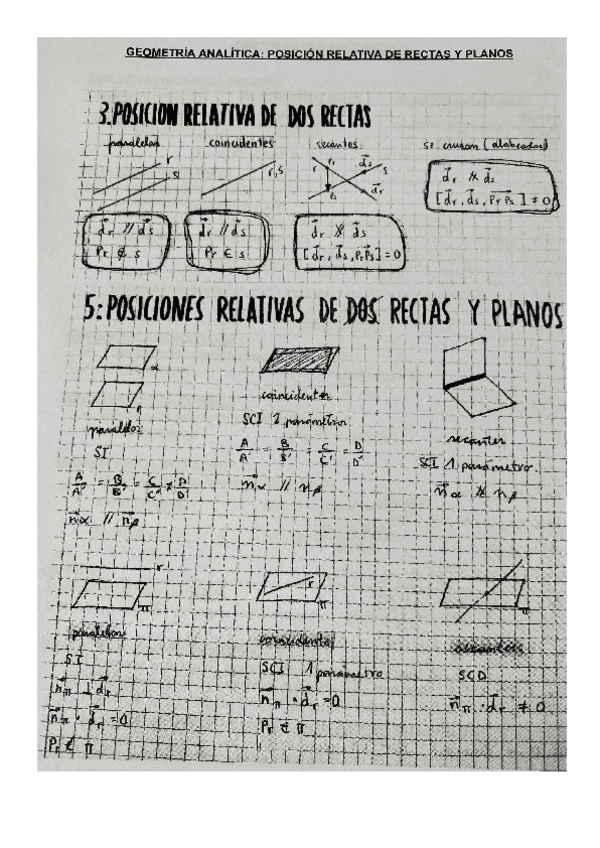 GEOMETRÍA ANALÍTICA: POSICIÓN RELATIVA DE RECTAS Y PLANOS
3. POSICION RELATIVA DE DOS RECTAS
paralelas coincidentes secantes se cruzan (alabeadas)
r s r,s r Pr d⃗s s Ps d⃗r
d⃗r // d⃗s
Pr ∉ s
d⃗r // d⃗s
Pr ∈ s
d⃗r ∦ d⃗s
[d⃗r, d⃗s, PrPs] = 0
d⃗r ∦ d⃗s
[d⃗r, d⃗s, PrPs] ≠ 0
5: POSICIONES RELATIVAS DE DOS RECTAS Y PLANOS
α
β
paralelos
SI
A/A' = B/B' = C/C' ≠ D/D'
n⃗α // n⃗β
coincidentes
SCI 2 parámetros
A/A' = B/B' = C/C' = D/D'
n⃗α // nβ
secantes
SCI 1 parámetro.
n⃗α ∦ nβ
r
π
paralelos
SI
n⃗π ⊥ d⃗r
n⃗π · d⃗r = 0
Pr ∉ π
r
π
coincidentes
SCI 1 parámetro
n⃗π · d⃗r = 0
π
secantes
SCD
n⃗π · d⃗r ≠ 0